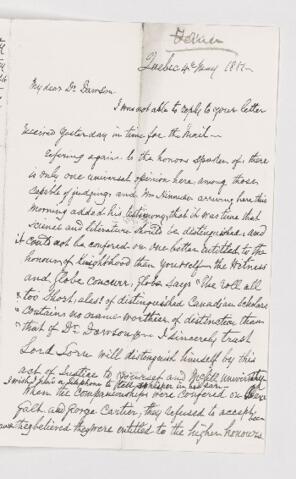 Quebec 4 May 1881
My dear Dr. Dawson
I was not able to reply to your letter
received yesterday in time for the Mail—
Refering again to the honors spoken of, there
is only one universal opinion here among those
capable of judging, and arriving here this
morning added his testimony, that it was time that
Science and literature should be distinguished, and
it could not be confered on one better entitled to the
honour of Knighthood than yourself— the Witness
and Globe concur, Globe says "The Roll all
too short, a list of distinguished Canadian scholars
contains no name worthier of distinction than
that of Dr. Dawson— I sincerely trust
Lord Lorne will distinguish himself by this
act of Justice to yourself and McGill University
I wish this in his ear—
When the Companionships were confered on
Galt and George Cartier, they refused to accept
they believed they were entitled to the higher honours